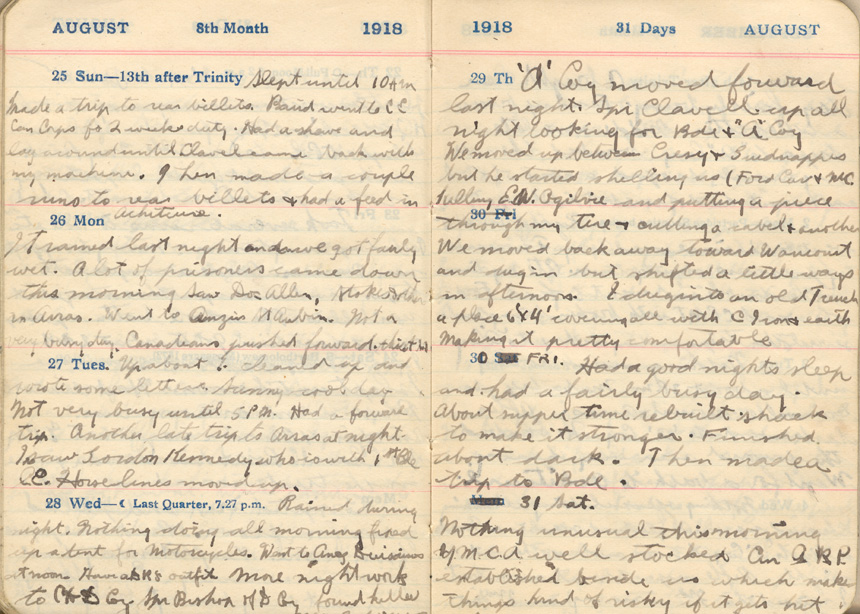 AUGUST 8th Month 1918
25 Sun—13th after Trinity Slept until 10 am
Made a trip to rear billets. Baird went to CE
Can Corps for 2 weeks duty. Had a shave and
lay around until Clavel came back with
my machine. Then made a couple
runs to rear billets & had a feed in
26 Mon
It rained last night and we got fairly
wet. A lot of prisoners came down
this morning Saw Doc Allen,
in Arras. Went to St Aubin. Not a
very busy day. Canadians pushed forward
27 Tues. Up about Cleaned up and
wrote some letters. Sunny cool day
Not very busy until 5 P.M. Had a forward
trip. Another late trip to Arras at night.
I saw Gordon Kennedy who is with 1st
C.E. Horse lines moved up.
28 Wed—☾ Last Quarter, 7.27 p.m. Rained during
night. Nothing doing all morning fixed
up a tent for Motorcycles. Went to Divisions
at noon. outfit More night work
to Coy. Spr Bishop of D Coy found killed
1918 31 Days AUGUST
29 Th 'A' Coy moved forward
last night. Spr Clavell up all
night looking for Bde & "A" Coy
We moved up between
but he started shelling us (Ford Car & M.C.
killing E.W. Ogilvie and putting a piece
30 Fri
through my tire & cutting a cabel & another
We moved back away toward Wancourt
and dug in but shifted a little ways
in afternoon. I dug into an old Trench
a place 6'x4' covering all with C Iron & earth
Making it pretty comfortable
30 FRI. Had a good nights sleep
and had a fairly busy day.
About supper time rebuilt shack
to make it stronger. Finished
about dark. Then made a
trip to Bde.
31 Sat.
Nothing unusual this morning
YMCA well stocked An
established beside us which makes
things kind of risky if it gets hit